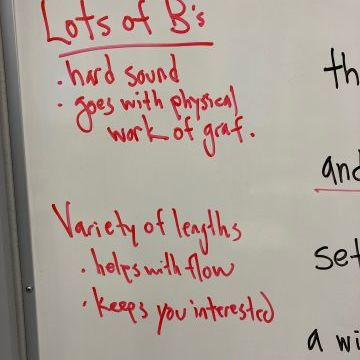 Lots of B's
· hard sound
· goes with physical
work of graf.
Variety of lengths
· helps with flow
· keeps you interested
th
and
set
a wi